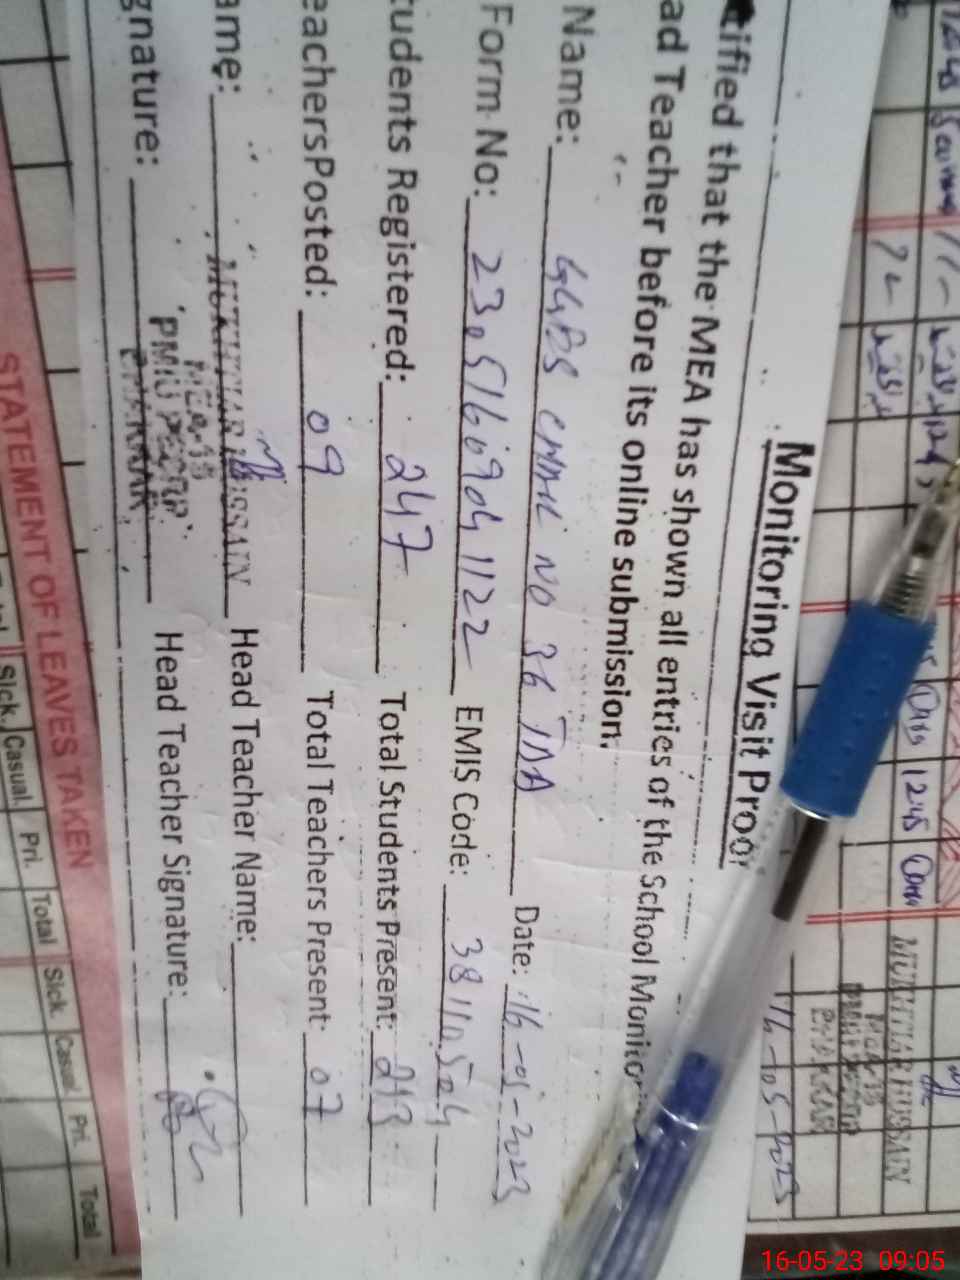 Monitoring Visit Proof
tified that the MEA has shown all entries of the School Monitor
ad Teacher before its online submission.
Name: GGPS CHAK NO 36 TDA Date: 16-05-2023
Form No: 23051609041122 EMIS Code: 38110524
tudents Registered: 247 Total Students Present: 213
eachersPosted: 09 Total Teachers Present: 07
ame: MUKHTIAR HUSSAIN Head Teacher Name:
MEA-13
gnature: PMIU PESRP Head Teacher Signature:
BHAKKAR
STATEMENT OF LEAVES TAKEN
Sick. Casual. Pri. Total Sick. Casual Pri. Total
12:45
MUKHTIAR HUSSAIN
16-05-2023
16-05-23 09:05